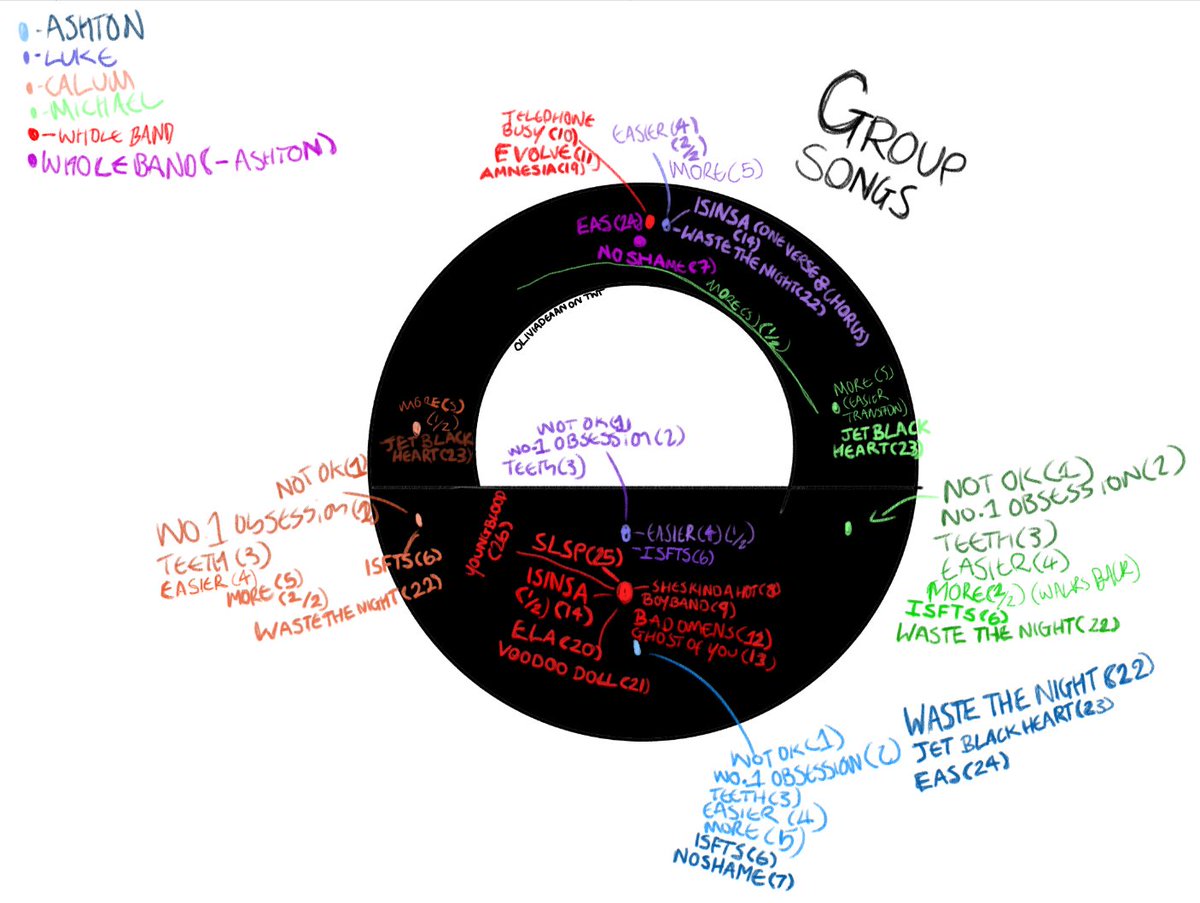 -ASHTON
-LUKE
-CALUM
-MICHAEL
-WHOLE BAND
WHOLE BAND(-ASHTON)
GROUP
SONGS
TELEPHONE
BUSY(10)
EVOLVE(11)
AMNESIA(19)
EASIER(4)
(2/2)
MORE(5)
EAS(24)
NO SHAME(7)
ISINSA (ONE VERSE & CHORUS)
(14)
-WASTE THE NIGHT(22)
MORE(5)(1/2)
OLIVIADEAAN ON TWT
MORE(5)
(1/2)
JET BLACK
HEART(23)
MORE(5)
(EASIER
TRANSITION)
JET BLACK
HEART(23)
NOT OK(1)
NO.1 OBSESSION(2)
TEETH(3)
-EASIER(4)(1/2)
-ISFTS(6)
NOT OK(1)
NO.1 OBSESSION(2)
TEETH(3)
EASIER(4)
MORE(5)
(2/2)
ISFTS(6)
WASTE THE NIGHT(22)
YOUNGBLOOD
(26)
SLSP(25)
ISINSA
(1/2)(14)
ELA(20)
VOODOO DOLL(21)
-SHES KINDA HOT(8)
BOYBAND(9)
BAD OMENS(12)
GHOST OF YOU(13)
NOT OK(1)
NO.1 OBSESSION(2)
TEETH(3)
EASIER(4)
MORE(2/2)(WALKS BACK)
ISFTS(6)
WASTE THE NIGHT(22)
NOT OK(1)
NO.1 OBSESSION(2)
TEETH(3)
EASIER (4)
MORE(5)
ISFTS(6)
NOSHAME(7)
WASTE THE NIGHT(22)
JET BLACK HEART(23)
EAS(24)